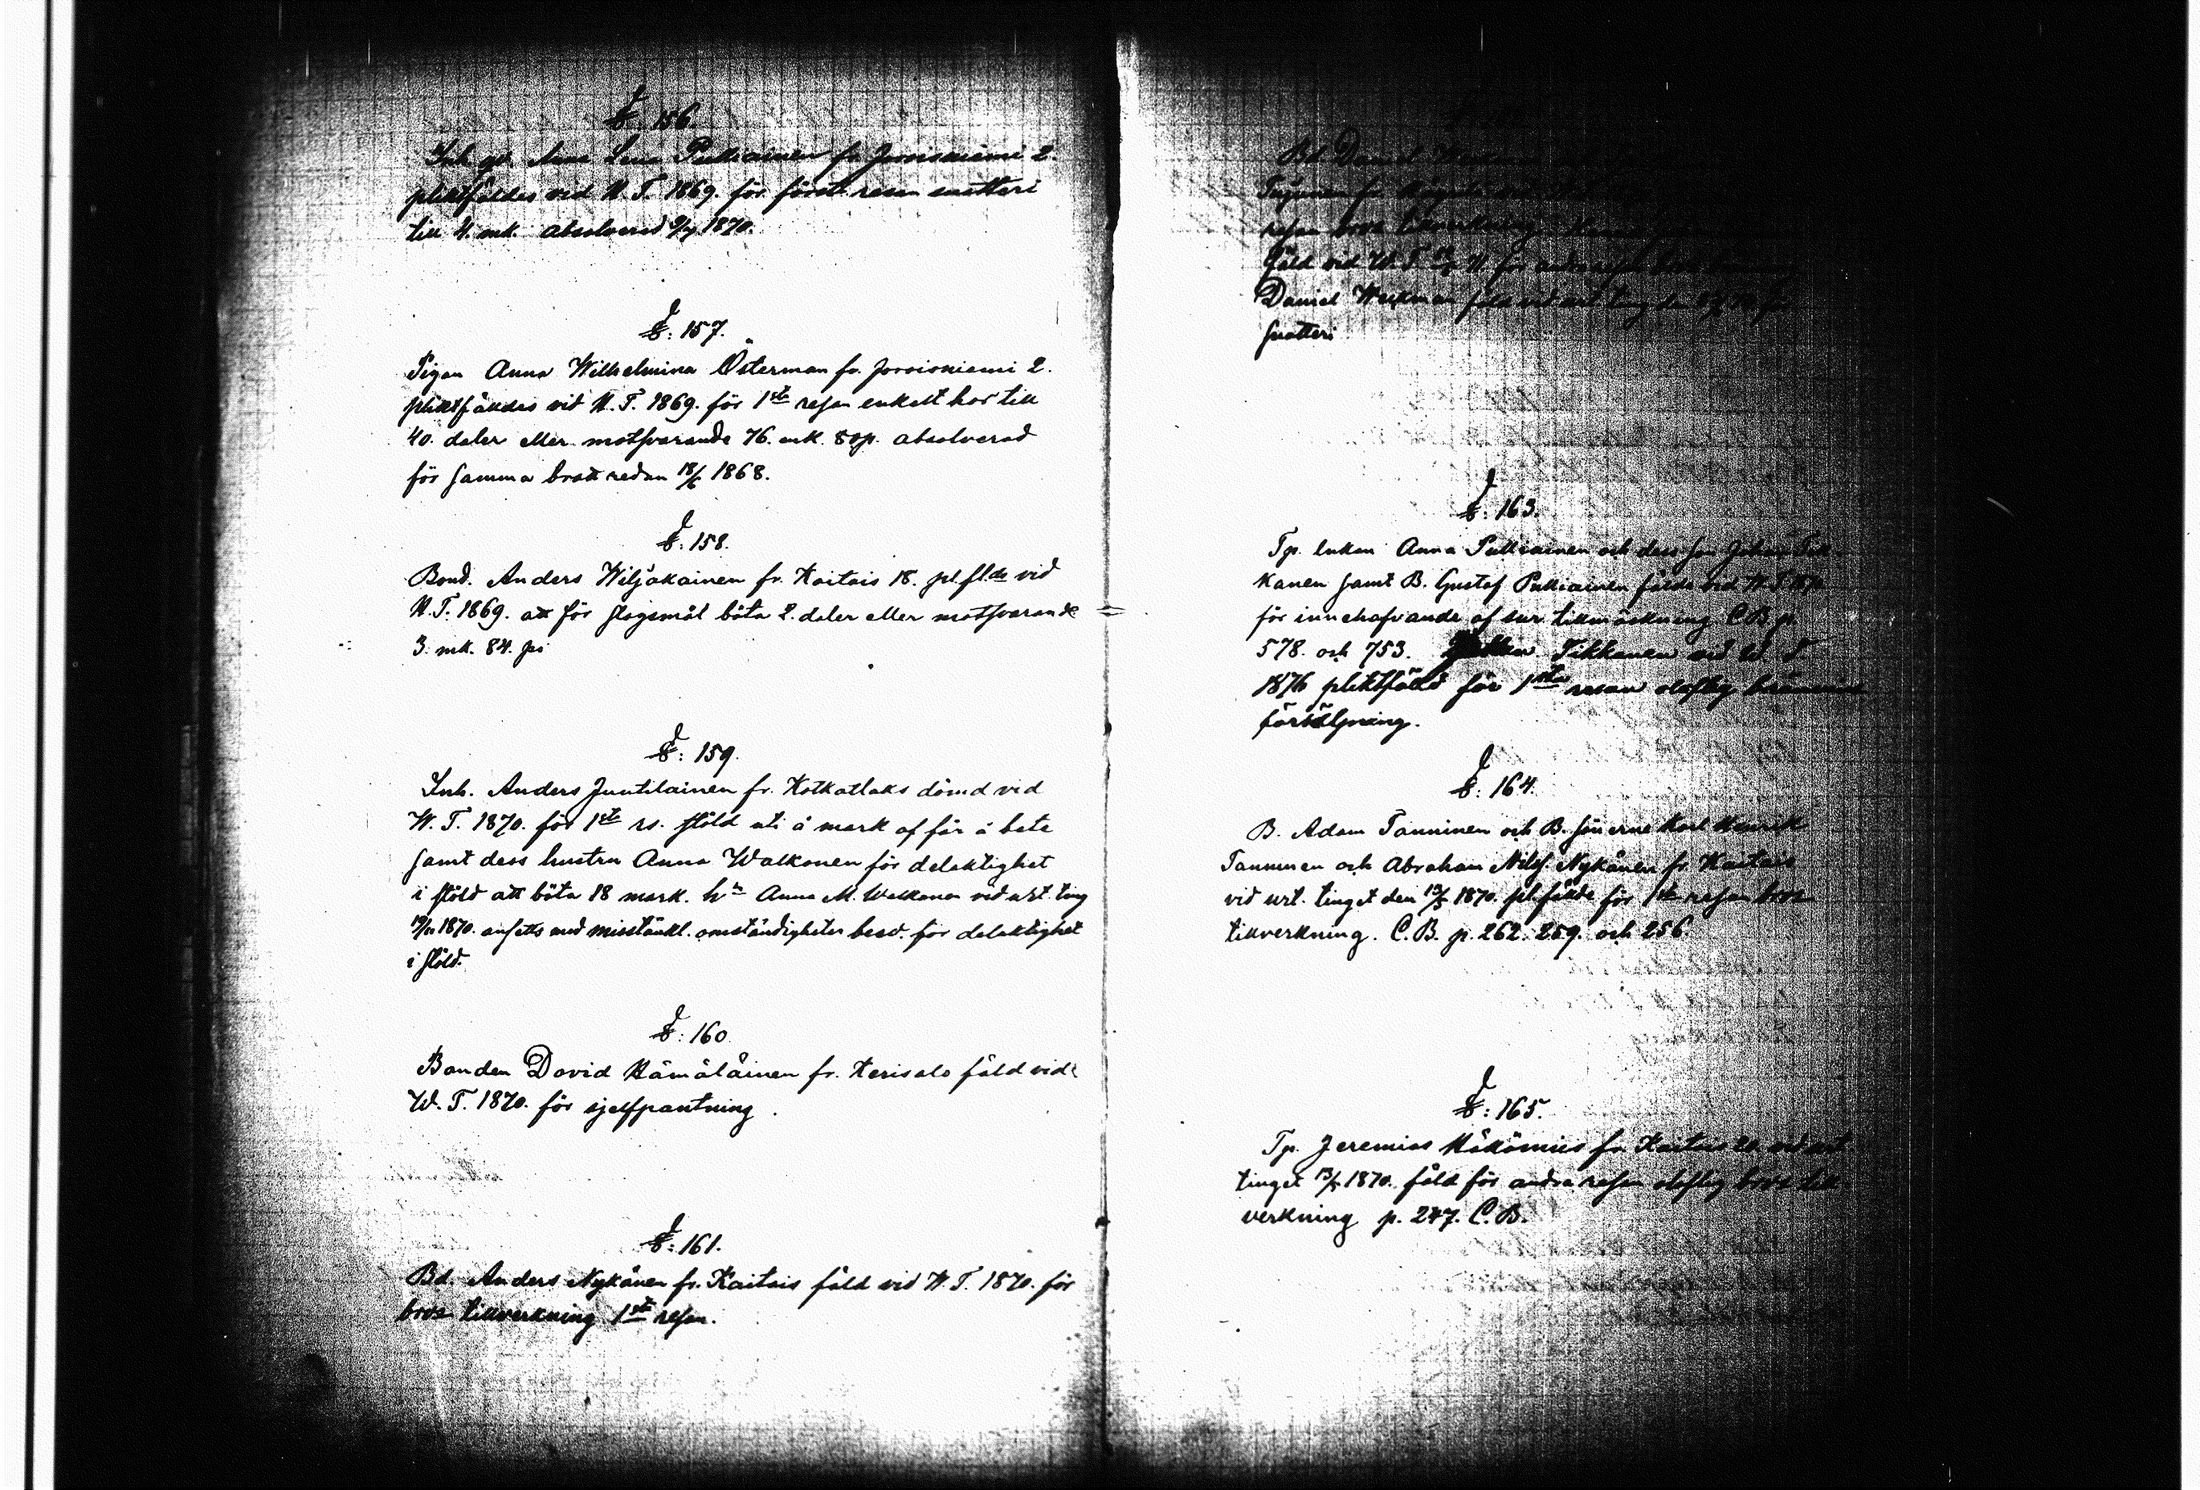 § 156
Inh. gd. Anna Lena Pulliainen fr. Jorvisniemi 2.
pliktfäldes vid H. T. 1869. för första resan snatteri
till 4. mk. absolverad 1870.
§: 157.
Pigan Anna Wilhelmina Österman fr. Jorvisniemi 2.
pliktfäldes vid H. T. 1869. för 1sta resan enkelt hor till
40. daler eller motsvarande 76. mk. 80p. absolverad
för samma brott redan 18/6 1868.
§: 158.
Bond. Anders Wiljakainen fr. Kaitais 18. pl.flds vid
H. T. 1869. att för slagsmål böta 2. daler eller motsvarande
3. mk. 84. pi
§: 159.
Inh. Anders Juutilainen fr. Kotkatlaks dömd vid
W. T. 1870. för 1sta rs. stöld uti å mark af får å bete
samt dess hustru Anna Walkonen för delaktighet
i stöld att böta 18 mark. hn Anna M. Walkonen vid urt. ting
19/11 1870. ansetts med misstänkl. omständigheter besv. för delaktighet
i stöld.
§: 160.
Bonden David Hämäläinen fr. Kerisalo fäld vid
W. T. 1870. för sjelfpantning.
§: 161.
Bd. Anders Nykänen fr. Kaitais fäld vid W. T. 1870. för
brvs tillverkning 1sta resan.
Bd. Daniel
resan brvs tillverkning.
fäld vid W. T. för andra resan
Daniel Weckman fäld vid urt. ting den
snatteri
§: 163.
Tp. enkan Anna Pulliainen och dess son Johan Tik
kanen samt B. Gustaf Pulliainen fälde vid W. T. 1870.
för innehafvande af sur tillmäskning C B p.
578. och 753. Tikkanen vid W. T
1876 pliktfälld för 1sta resan olaflig brännvins
försäljning.
§: 164.
B. Adam Tanninen och B. sönerne Karl Henrik
Tanninen och Abraham Nilsf. Nykänen fr. Kaitais
vid urt. tinget den 13/5 1870. pl.fälde för 1sta resan brvs
tillverkning. C. B. p. 262. 259. och 256
§: 165.
Tp. Jeremias Häkämies fr. Kaitais 20. vid urt
tinget 13/5 1870. fäld för andra resan olaflig brvs till
verkning p. 247. C. B.